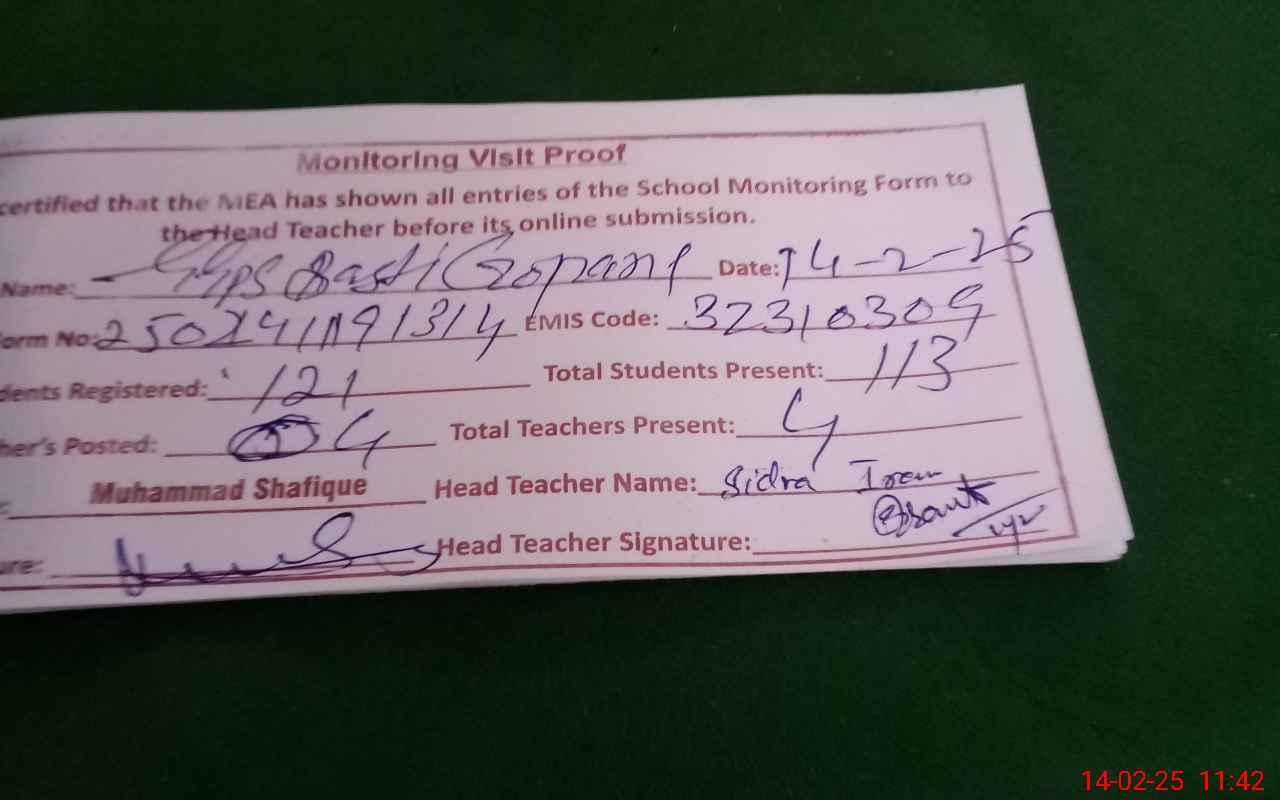 Monitoring Visit Proof
certified that the MEA has shown all entries of the School Monitoring Form to
the Head Teacher before its online submission.
Name: GGPS Basti Gopang Date: 14-2-25
orm No: EMIS Code: 32310309
dents Registered: 121 Total Students Present: 113
her's Posted: 4 Total Teachers Present: 4
Muhammad Shafique Head Teacher Name: Sidra Iram
ure: Head Teacher Signature:
14-02-25 11:42